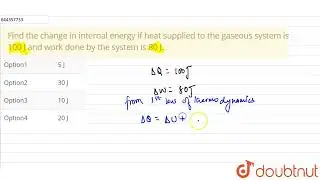 644357753
Find the change in internal energy if heat supplied to the gaseous system is
100 J and work done by the system is 80 J.
Option1 5 J
Option2 30 J
Option3 10 J
Option4 20 J
ΔQ = 100J
ΔW = 80J
from 1st law of thermodynamics
ΔQ = ΔU +
doubtnut